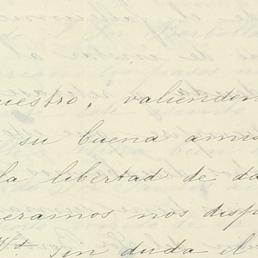 uestro, valiéndon
su buena amis
la libertad de da
eramos nos disp
sin duda el